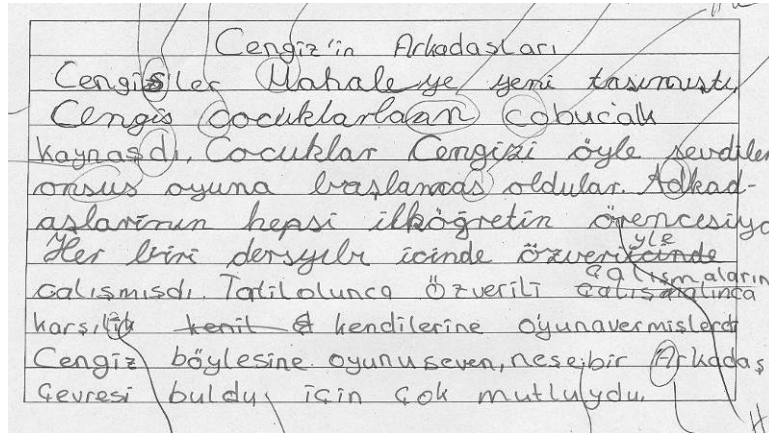 Cengiz'in Arkadaşları
Cengisiler Mahaleye yeni tasımıstı,
Cengis Cocuklarlaan cobucak
kaynasdı. Cocuklar Cengizi öyle sevdiler
onsus oyuna baslamas oldular. Adkad-
aslarinın hepsi ilköğretin örencesiyd
Her biri dersyılı icinde özvericinde
yle
calısmısdı. Tatilolunca Özverili calısmalınca
çalışmaların
karsılık kenit kendilerine oyunavermislerdi
Cengiz böylesine oyunuseven, nese bir Arkadaş
Gevresi buldu için Gok mutluydu.